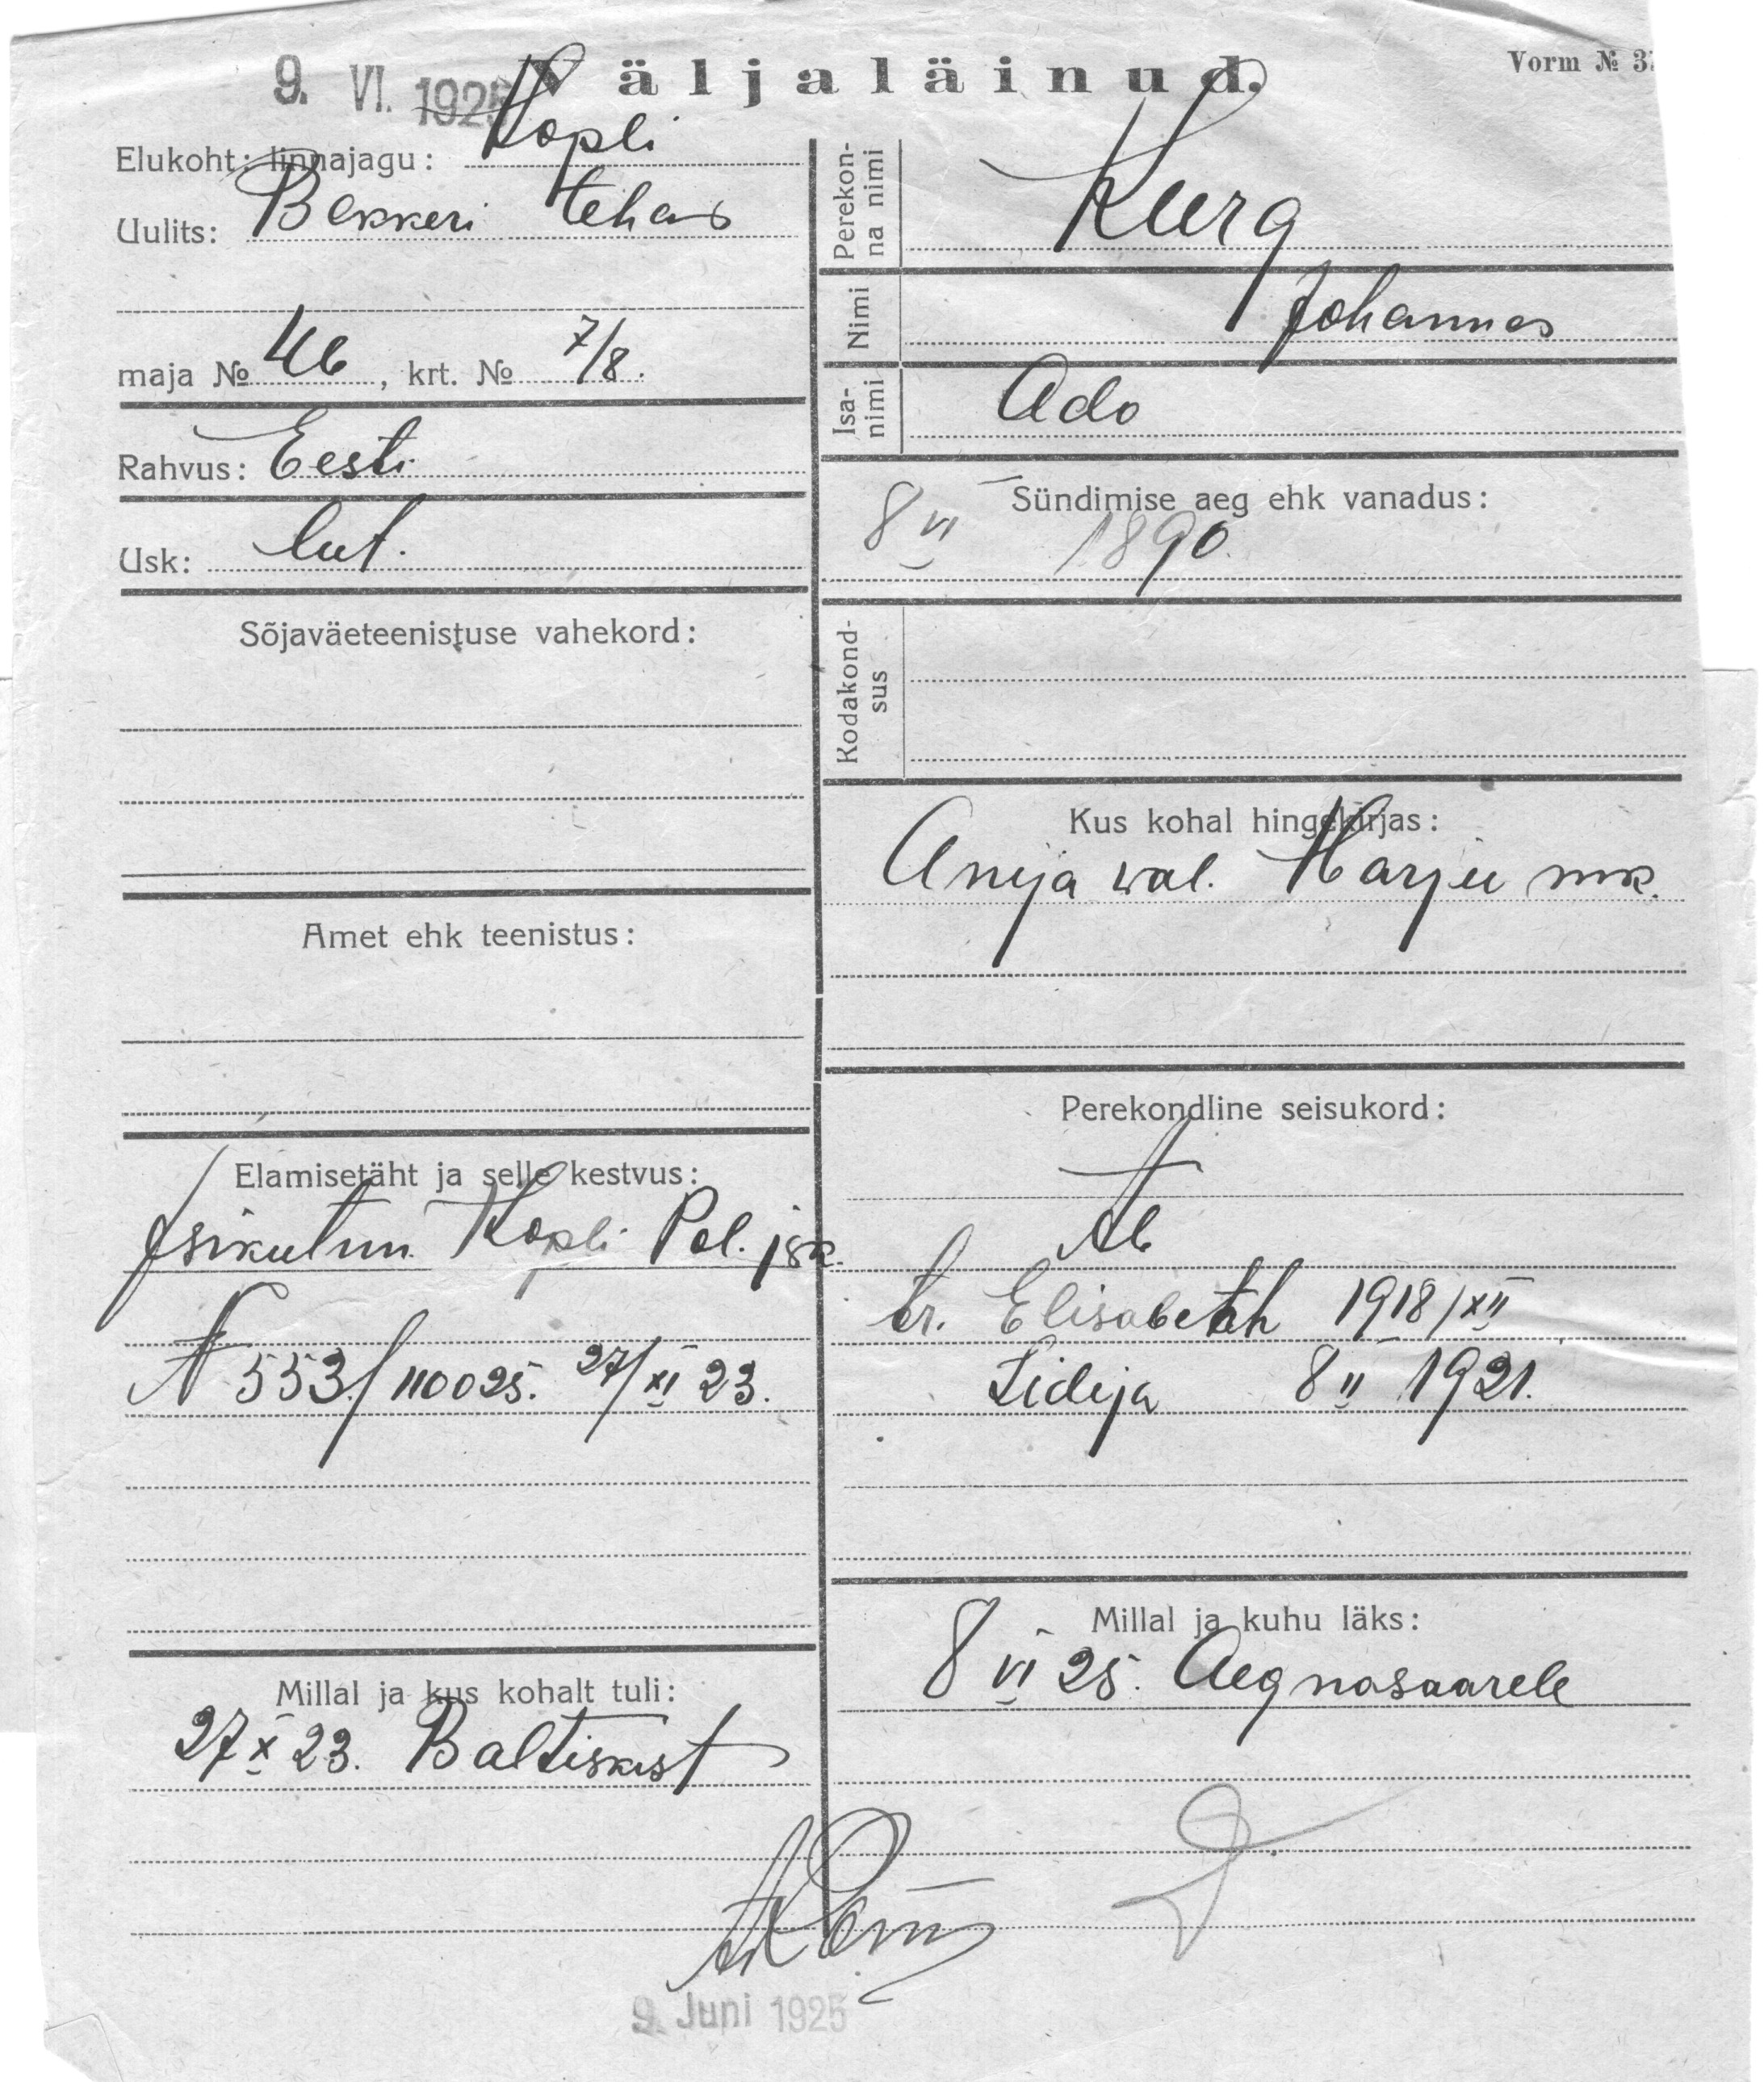 9. VI. 1925
Väljaläinud.
Vorm № 3
Elukoht: linnajagu: Kopli
Uulits: Bekkeri tehas
maja № 46, krt. № 7/8.
Rahvus: Eesti
Usk: lut.
Sõjaväeteenistuse vahekord:
Amet ehk teenistus:
Elamisetäht ja selle kestvus:
Isikutun. Kopli Pol. jsk.
N 553/110025. 27/XI 23.
Millal ja kus kohalt tuli:
27 X 23. Baltiskist
Perekonna nimi Kurg
Nimi Johannes
Isanimi Ado
Sündimise aeg ehk vanadus:
8 VI 1890.
Kodakondsus
Kus kohal hingekirjas:
Anija wal. Harju mk.
Perekondline seisukord:
Ab
tr. Elisabetah 1918/XII
Lidija 8 II 1921.
Millal ja kuhu läks:
8 VI 25. Aegnasaarele
9. Juni 1925